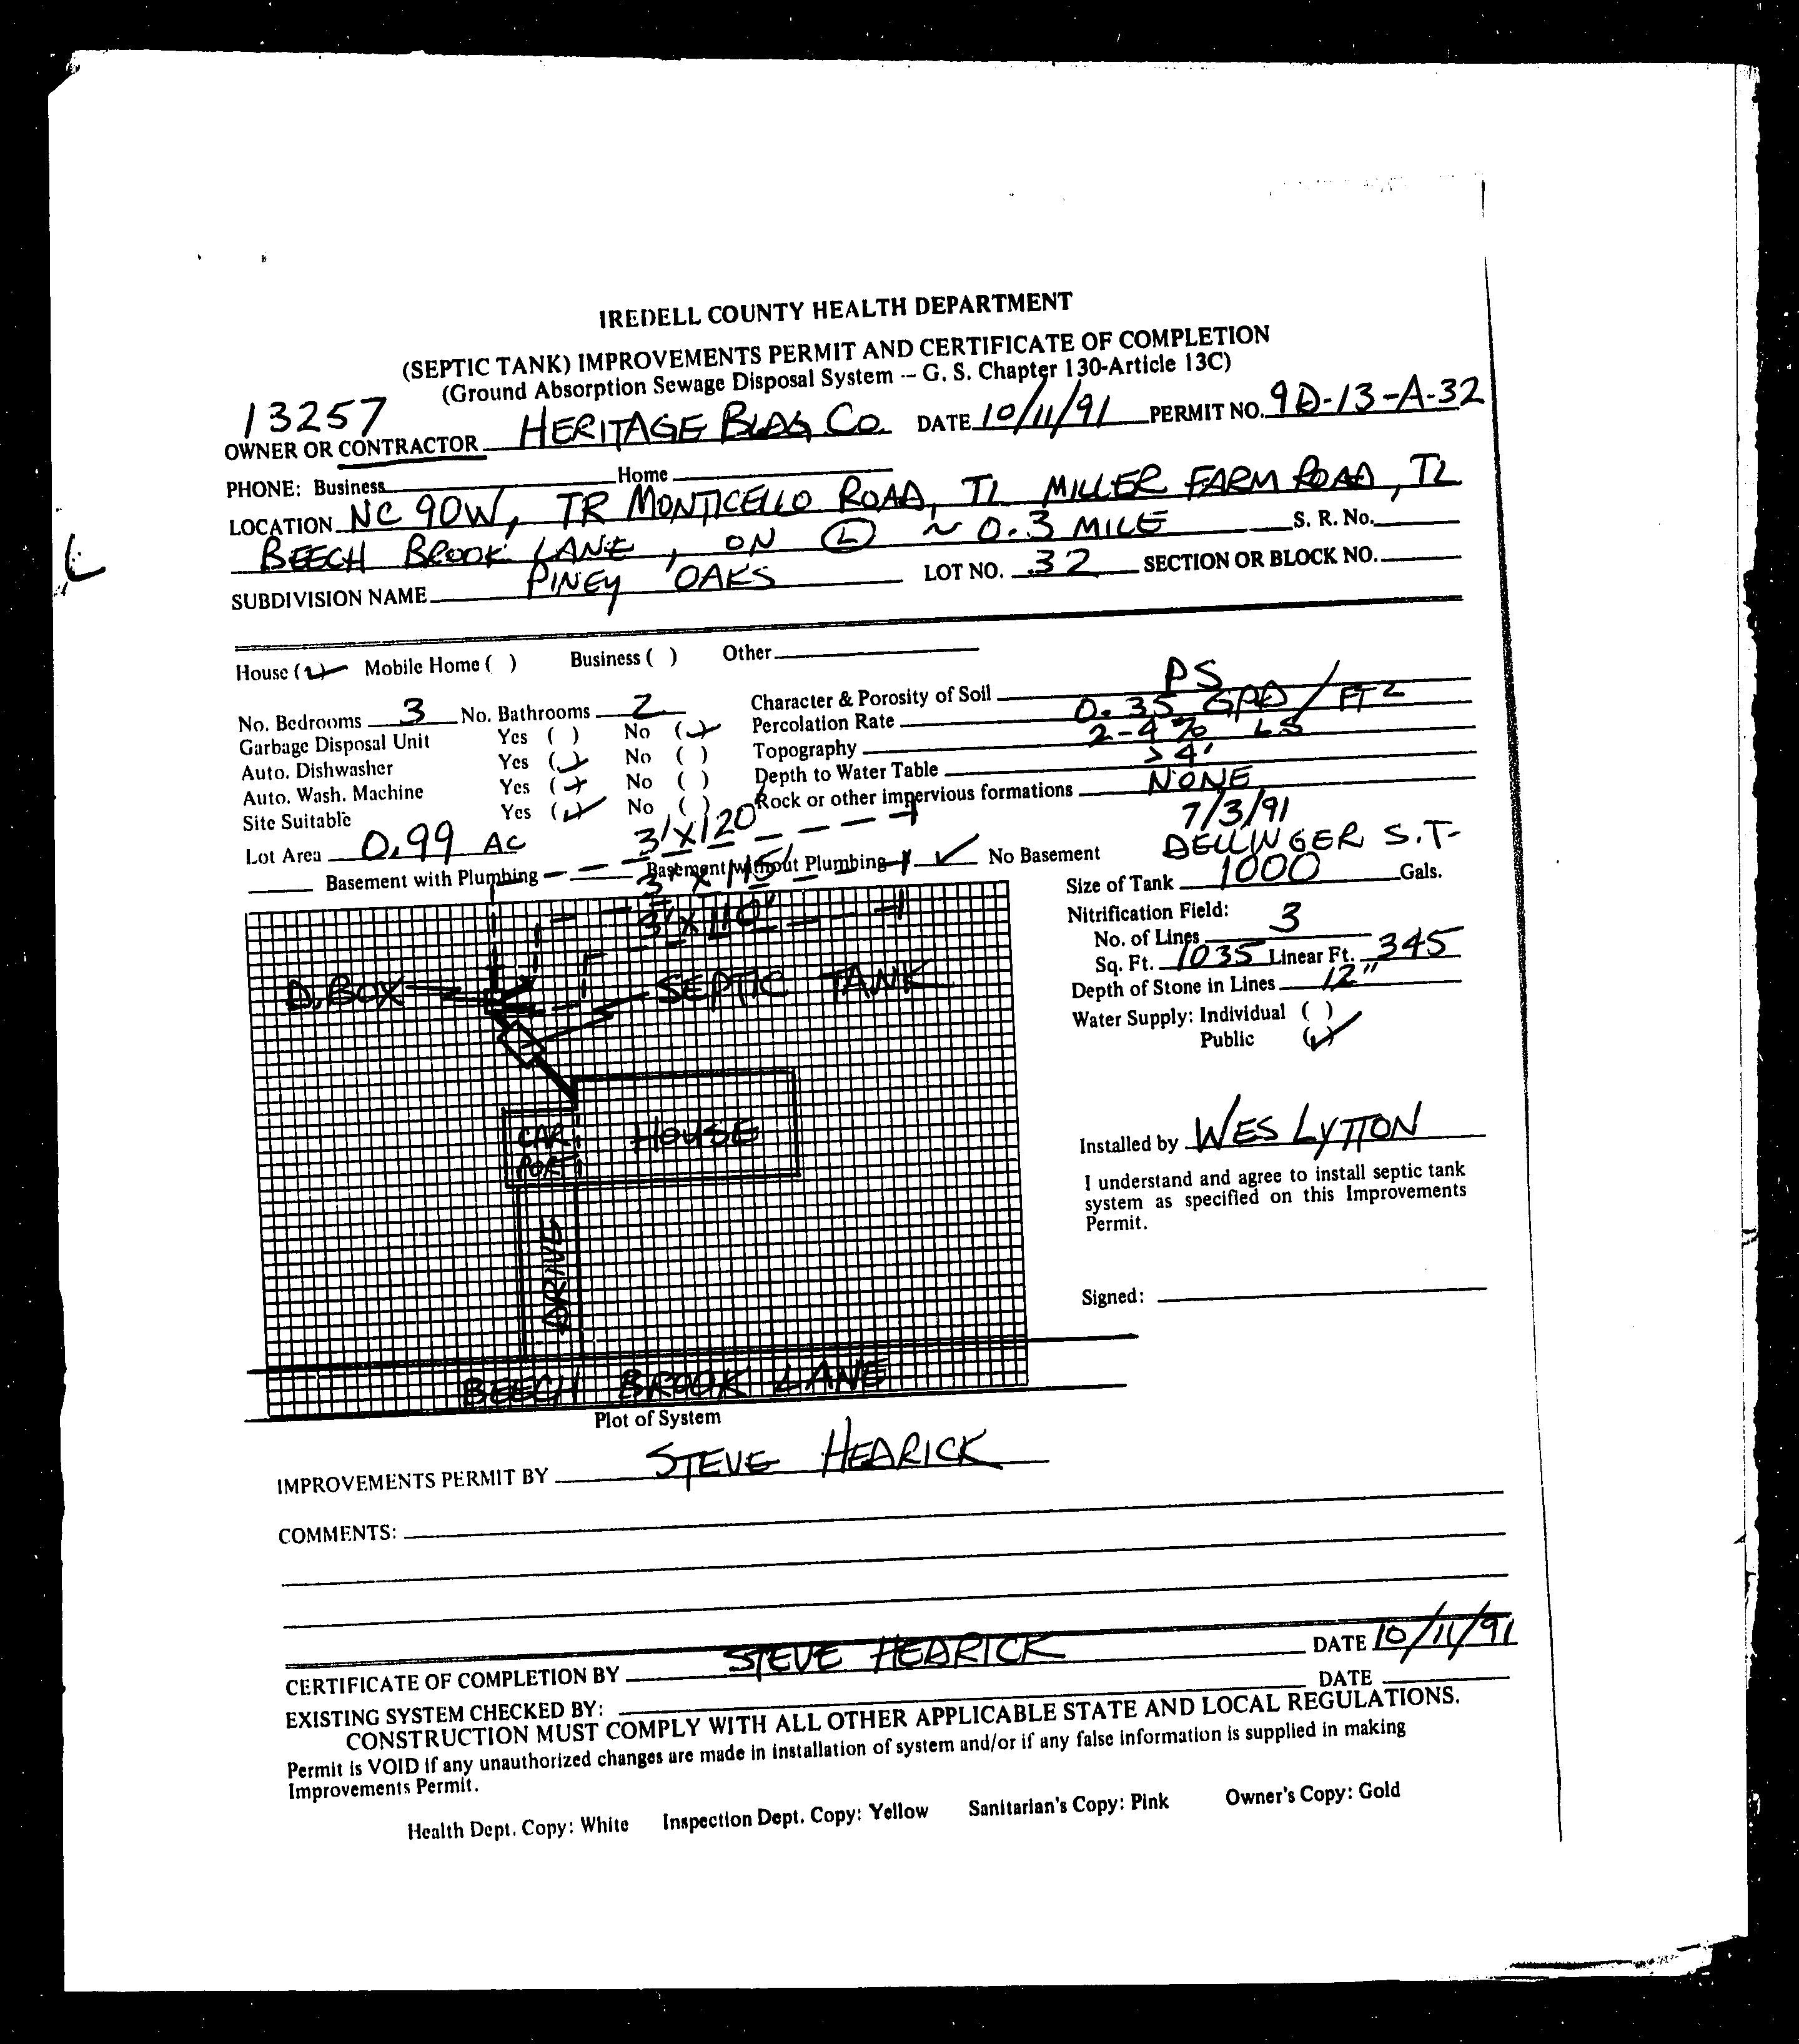 IREDELL COUNTY HEALTH DEPARTMENT
(SEPTIC TANK) IMPROVEMENTS PERMIT AND CERTIFICATE OF COMPLETION
(Ground Absorption Sewage Disposal System -- G. S. Chapter 130-Article 13C)
13257
OWNER OR CONTRACTOR HERITAGE BLDG Co. DATE 10/11/91 PERMIT NO. 9D-13-A-32
PHONE: Business Home
LOCATION NC 90W, TR MONTICELLO ROAD, TL MILLER FARM ROAD, TL
BEECH BROOK LANE, ON (L) ~ 0.3 MILE S. R. No.
SUBDIVISION NAME PINEY OAKS LOT NO. 32 SECTION OR BLOCK NO.
House (✓) Mobile Home ( ) Business ( ) Other
No. Bedrooms 3 No. Bathrooms 2 Character & Porosity of Soil PS
Garbage Disposal Unit Yes ( ) No (✓) Percolation Rate 0.35 GPD/FT2
Auto. Dishwasher Yes (✓) No ( ) Topography 2-4% LS
Auto. Wash. Machine Yes (✓) No ( ) Depth to Water Table >4'
Site Suitable Yes (✓) No ( ) Rock or other impervious formations NONE
Lot Area 0.99 AC 3'X120' 7/3/91
DELLINGER S.T.
Basement with Plumbing Basement without Plumbing ✓ No Basement
3'X115'
Size of Tank 1000 Gals.
3'X110'
Nitrification Field:
No. of Lines 3
Sq. Ft. 1035 Linear Ft. 345
D.BOX SEPTIC TANK
Depth of Stone in Lines 12"
Water Supply: Individual ( )
Public (✓)
CAR PORT HOUSE
Installed by WES LYTTON
I understand and agree to install septic tank
system as specified on this Improvements
Permit.
DRIVE
Signed:
BEECH BROOK LANE
Plot of System
IMPROVEMENTS PERMIT BY STEVE HEDRICK
COMMENTS:
CERTIFICATE OF COMPLETION BY STEVE HEDRICK DATE 10/11/91
EXISTING SYSTEM CHECKED BY: DATE
CONSTRUCTION MUST COMPLY WITH ALL OTHER APPLICABLE STATE AND LOCAL REGULATIONS.
Permit is VOID if any unauthorized changes are made in installation of system and/or if any false information is supplied in making
Improvements Permit.
Health Dept. Copy: White Inspection Dept. Copy: Yellow Sanitarian's Copy: Pink Owner's Copy: Gold